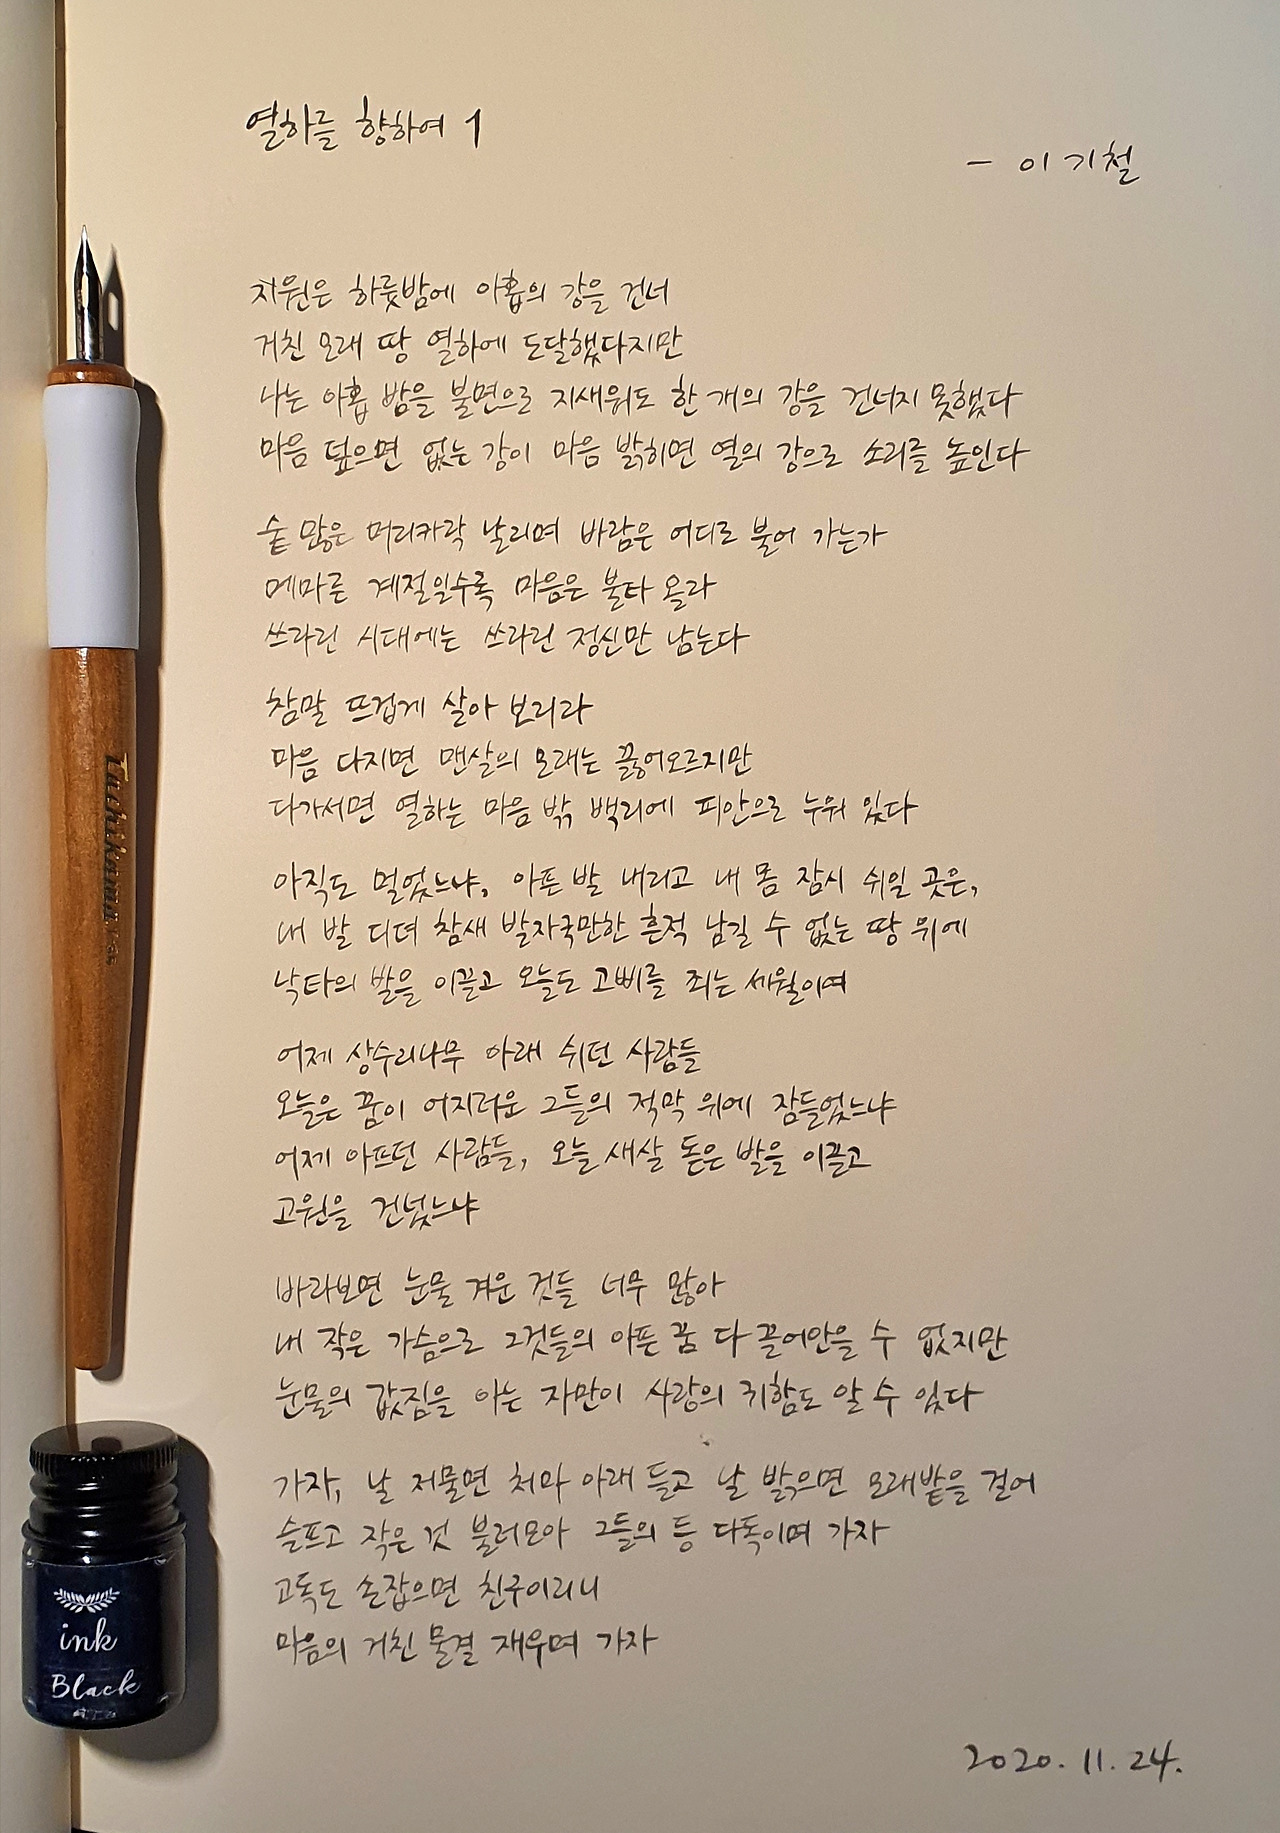 열하를 향하여 1
- 이기철
지원은 하룻밤에 아홉의 강을 건너
거친 모래 땅 열하에 도달했다지만
나는 아홉 밤을 불면으로 지새워도 한 개의 강을 건너지 못했다
마음 덮으면 없는 강이 마음 밝히면 열의 강으로 소리를 높인다
숱 많은 머리카락 날리며 바람은 어디로 불어 가는가
메마른 계절일수록 마음은 불타 올라
쓰라린 시대에는 쓰라린 정신만 남는다
참말 뜨겁게 살아 보리라
마음 다지면 맨살의 모래는 끓어오르지만
다가서면 열하는 마음 밖 백리에 피안으로 누워 있다
아직도 멀었느냐, 아픈 발 내리고 내 몸 잠시 쉬일 곳은,
내 발 디뎌 참새 발자국만한 흔적 남길 수 없는 땅 위에
낙타의 발을 이끌고 오늘도 고삐를 죄는 세월이여
어제 상수리나무 아래 쉬던 사람들
오늘은 꿈이 어지러운 그들의 적막 위에 잠들었느냐
어제 아프던 사람들, 오늘 새살 돋은 발을 이끌고
고원을 건넜느냐
바라보면 눈물 겨운 것들 너무 많아
내 작은 가슴으로 그것들의 아픈 꿈 다 끌어안을 수 없지만
눈물의 값짐을 아는 자만이 사랑의 귀함도 알 수 있다
가자, 날 저물면 처마 아래 들고 날 밝으면 모래밭을 걸어
슬프고 작은 것 불러모아 그들의 등 다독이며 가자
고독도 손잡으면 친구이리니
마음의 거친 물결 재우며 가자
2020. 11. 24.
Tachikawa
ink
Black